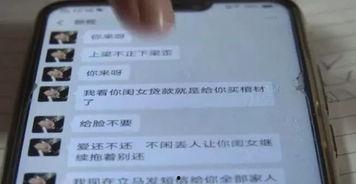 你来呀
上梁不正下梁歪
你来呀
我看你闺女贷款就是给你买棺材
了
给脸不要
爱还不还 不闲丢人让你闺女继
续拖着别还
我现在立马发短信给你全部家人